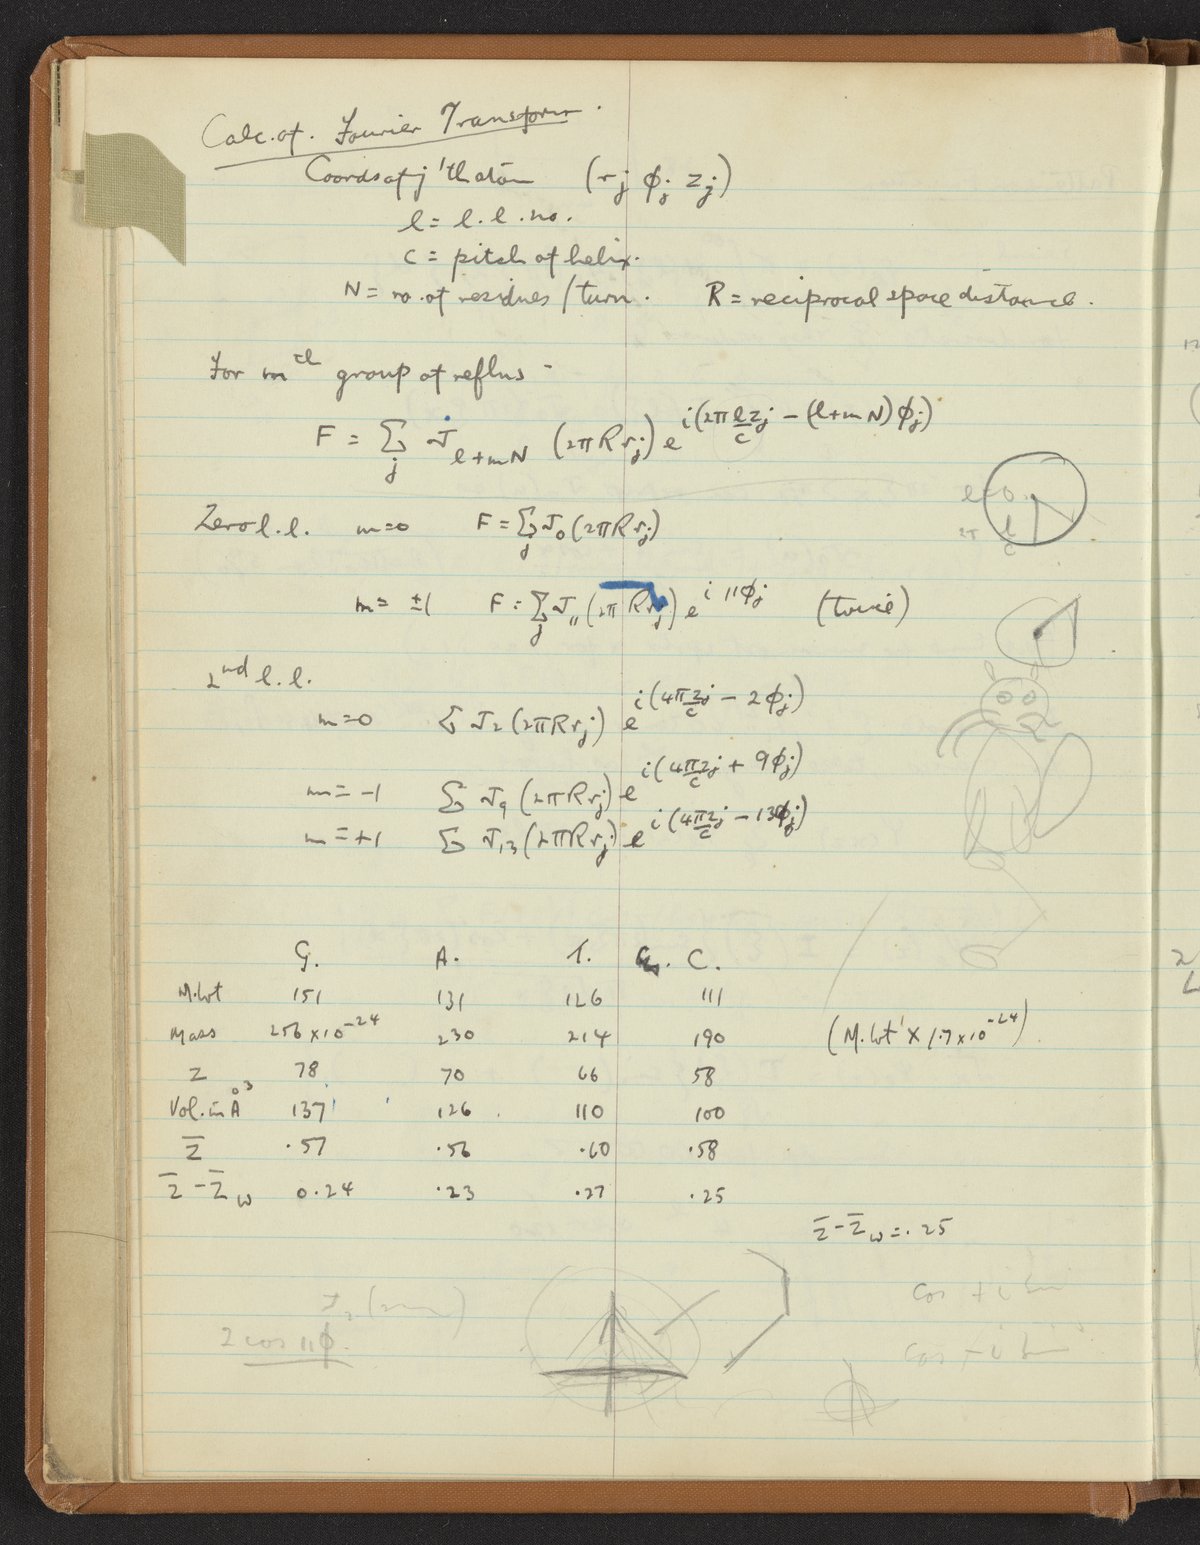 Calc. of. Fourier Transform.
Coords of j'th atom (rj ϕj zj)
l = l.l. no.
c = pitch of helix.
N = no. of residues / turn. R = reciprocal space distance.
For mth group of reflns -
F = ∑j J l+mN (2πRrj) e i(2π lzj/c - (l+mN)ϕj)
l=0
2π l/c
Zero l.l. m=0 F = ∑j J0 (2πRrj)
m= ±1 F = ∑j J11 (2πRrj) e i 11ϕj (twice)
2nd l.l.
m=0 ∑ J2 (2πRrj) e i(4πzj/c - 2ϕj)
m= -1 ∑ J9 (2πRrj) e i(4πzj/c + 9ϕj)
m= +1 ∑ J13 (2πRrj) e i(4πzj/c - 13ϕj)
G. A. T. C.
M.Wt 151 131 126 111
Mass 256 x 10⁻²⁴ 230 214 190 (M.Wt x 1.7 x 10⁻²⁴)
Z 78 70 66 58
Vol. in Å³ 137 126 110 100
Z̄ .57 .56 .60 .58
Z̄ - Z̄w 0.24 .23 .27 .25
Z̄ - Z̄w = .25
cos + i sin
2 cos 11ϕ
cos - i sin